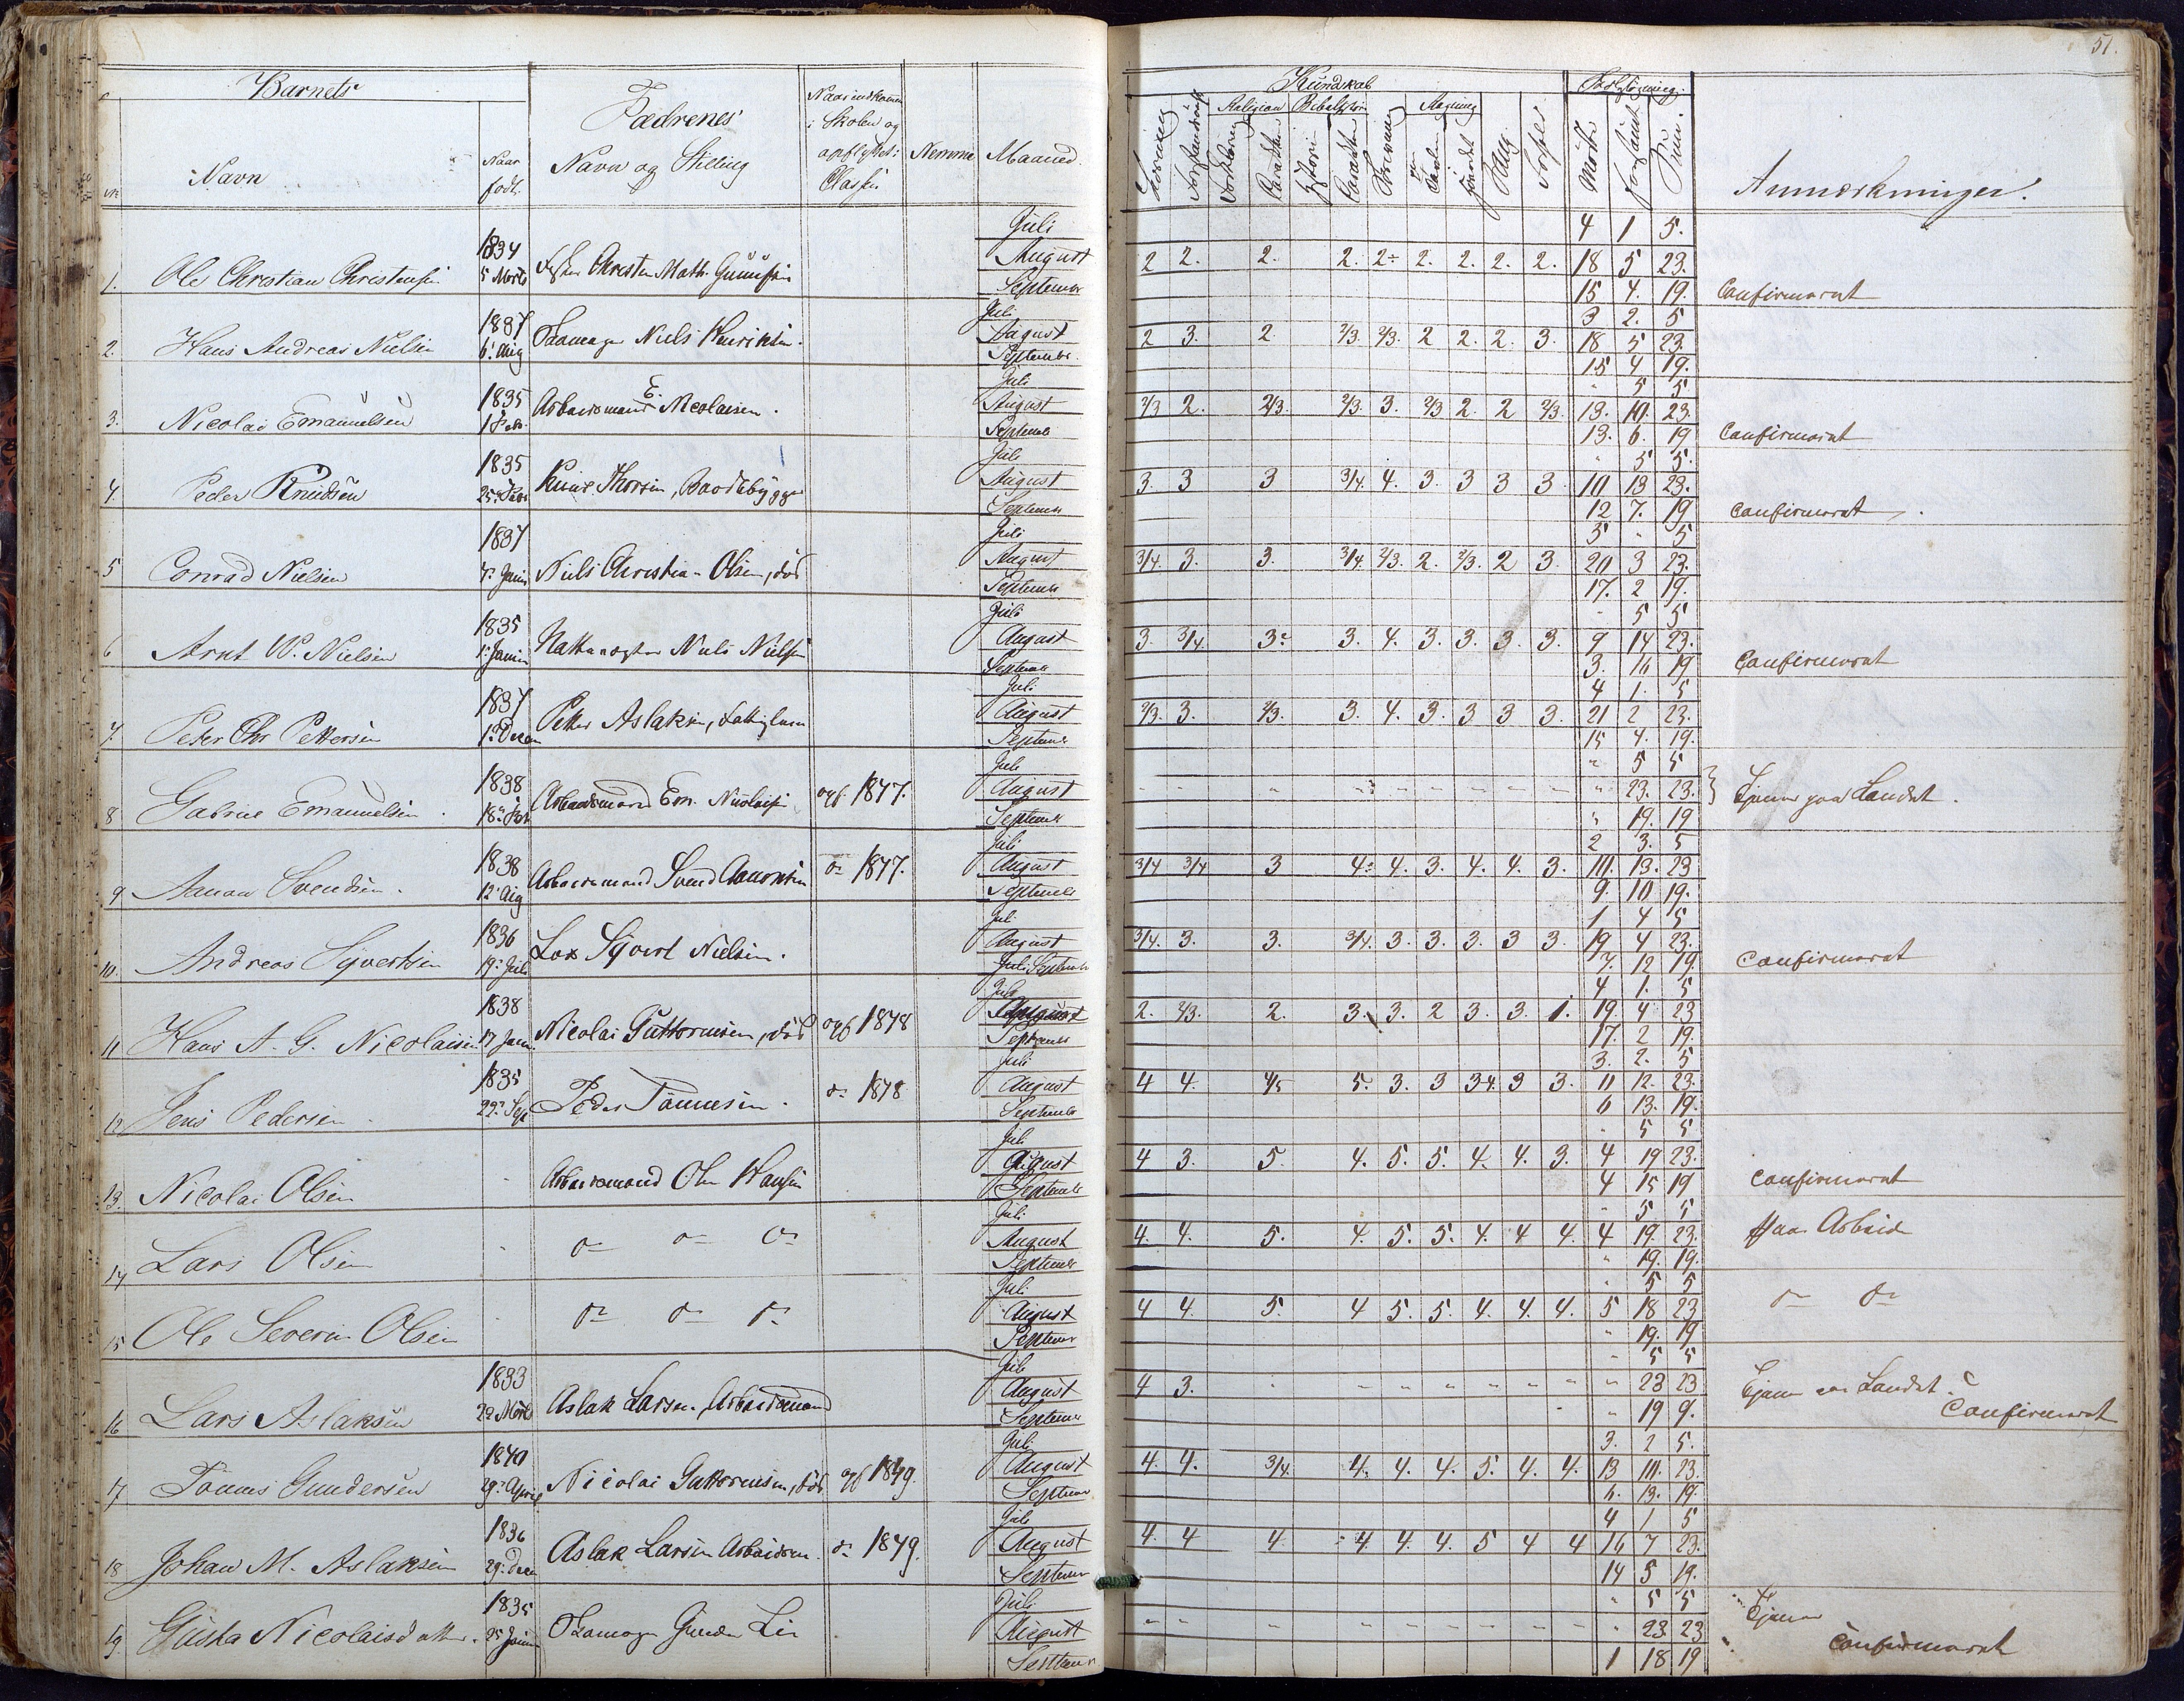 51.
Barnets
No Navn
Naar født.
Fædrenes
Navn og Stilling
Naar indkommen i Skolen og opflyttet i Classen
Nemme
Maaned.
Kundskab
Læsning Forstandsøv. Religion Forklaring Bibelhistorie Skrivning Regning Tavlen Hovedet Sang
Forhold
Mødte Forsømt Sum.
Anmærkninger.
1. Ole Christian Christensen 1834 5 Marts Christen Math. Gunnisen
Juli 4 1 5.
August 2 2. 2. 2. 2- 2. 2. 2. 2. 18 5 23.
September 15 4. 19. Confirmeret
2. Hans Andreas Nielsen 1837 6. Aug Niels Henriksen.
Juli 3 2. 5
August 2 3. 2. 2/3. 2/3. 2 2. 2. 3. 18 5 23
September 15 4 19.
3. Nicolai Emanuelsen 1835 1 Feb. Arbeidsmand E. Nicolaisen.
Juli " 5 5
August 2/3 2. 2/3. 2/3. 3. 2/3 2. 2 2/3. 13. 10. 23
September 13. 6. 19 Confirmeret
4. Peder Knudsen 1835 25 Febr Knud Thorsen, Baadebygger
Juli " 5 5.
August 3. 3 3 3/4. 4. 3. 3 3 3. 10 13 23.
September 12 7. 19 Confirmeret.
5 Conrad Nielsen 1837 4. Juni Niels Christian Olsen, død
Juli 5 " 5
August 3/4. 3. 3. 3/4. 2/3. 2. 2/3. 2 3. 20 3 23.
September 17. 2 19.
6 Arnt W. Nielsen 1835 1. Juni Nattevægter Niels Nielsen
Juli " 5 5
August 3. 3/4. 3- 3. 4. 3. 3. 3. 3. 9 14 23.
September 3. 16 19 Confirmeret
7. Peter Chr Pettersen 1837 1. Decem Petter Aslaksen, Fattiglem
Juli 4 1. 5
August 2/3. 3. 2/3. 3. 4. 3. 3 3 3. 21 2 23.
September 15 4. 19.
8 Gabriel Emanuelsen. 1838 18. Arbeidsmand Em. Nicolaisen opf. 1847.
Juli " 5 5
August " 23. 23. Tjener paa Landet.
September " 19. 19
9 Aanon Svendsen. 1838 12 Aug Arbeidsmand Svend Aanonsen do 1847.
Juli 2 3. 5
August 3/4 3/4 3 4- 4. 3. 4. 4. 3. 10. 13. 23
September 9. 10 19.
10. Andreas Syvertsen 1836 19. Juli Los Syvert Nielsen.
Juli 1 4 5
August 3/4. 3. 3. 3/4. 3. 3. 3. 3 3. 19 4 23.
September 7. 12 19. Confirmeret
11 Hans A. G. Nicolaisen 1838 17 Janu. Nicolai Guttormsen, død opf 1848
Juli 4 1. 5
August 2. 2/3. 2. 3. 3. 2 3. 3. 1. 19. 4 23
September 17. 2 19.
12 Jens Pedersen 1835 22. Sept Peder Tønnesen. do 1848
Juli 3. 2. 5
August 4 4. 4/5 5. 3. 3 3 4. 3 3. 11 12. 23.
September 6 13. 19.
13. Nicolai Olsen Arbeidsmand Ole Hansen
Juli " 5 5
August 4 3. 5. 4. 5. 5. 4. 4. 3. 4 19 23.
September 4 15 19 Confirmeret
14 Lars Olsen do do do
Juli " 5 5
August 4. 4. 5. 4. 5. 5. 4. 4 4. 4 19. 23. Har Arbeid
September " 19. 19.
15 Ole Severin Olsen do do do
Juli " 5 5
August 4 4. 5. 4 5. 5. 4. 4. 4. 5 18 23 do do
September " 19. 19
16 Lars Aslaksen 1833 Marts Aslak Larsen, Arbeidsmand
Juli " 5 5
August 4 3. " 23 23 Tjener paa Landet.
September " 19 9. Confirmeret
17 Tønnes Gundersen 1840 29. April Nicolai Guttormsen, død opf 1849.
Juli 3. 2 5.
August 4. 4. 3/4. 4. 4. 4. 5. 4. 4. 13 10. 23.
September 6. 13. 19.
18 Johan M. Aslaksen 1836 29. Decem Aslak Larsen Arbeidsm. do 1849.
Juli 4 1 5
August 4. 4 4. 4 4. 4. 5 4 4 16 7 23.
September 14 5 19.
19. Gusta Nicolaisdatter. 1835 25 Juni Gunder Lie
Juli " 5 5 Tjener
August " 23 23
September 1 18 19 Confirmeret